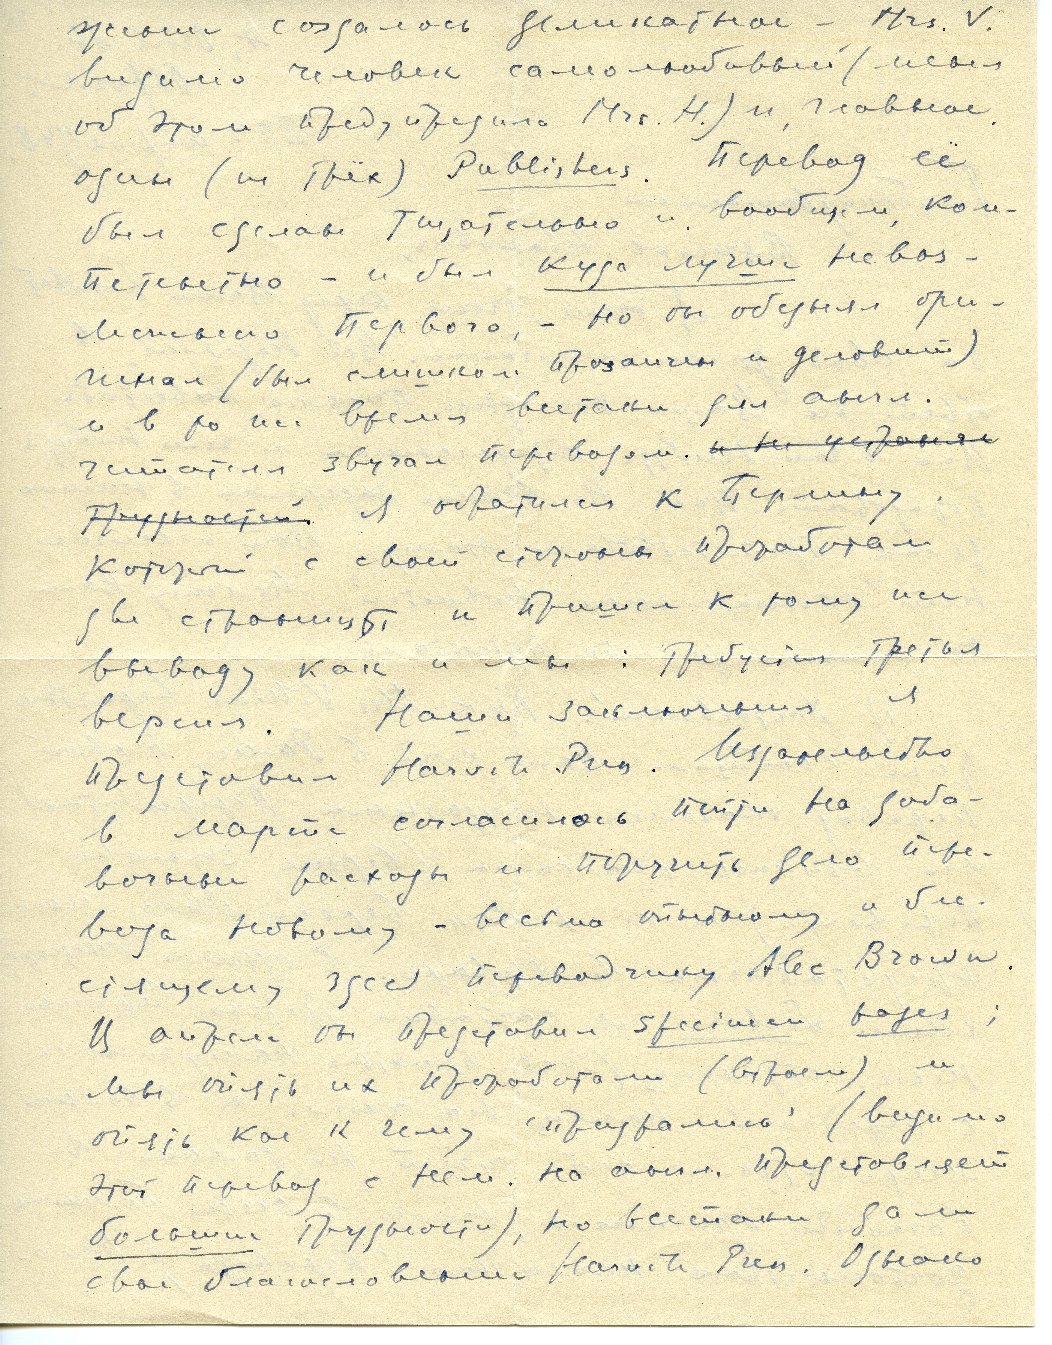 жение создалось деликатное – Mrs. V.
видимо человек самолюбивый (меня
об этом предупредила Mrs. H.) и, главное,
один (из трёх) Publishers. Перевод её
был сделан тщательно и, вообщем, ком-
петентно – и был куда лучше невоз-
можного первого, – но он обеднял ори-
гинал (был слишком прозаичен и деловит)
и в то же время всетаки для англ.
читателя звучал переводом. и не устранял
трудностей. Я обратился к Перлину,
который с своей стороны проработал
две страницы и пришел к тому же
выводу как и мы: требуется третья
версия. Наши заключения я
представил Harvill Press. Издательство
в марте согласилось пойти на доба-
вочные расходы и поручить дело пере-
вода новому – весьма опытному и бле-
стящему здесь переводчику Alec Brown.
В апреле он представил specimen pages;
мы опять их проработали (втроем) и
опять кое к чему 'придрались' (видимо
этот перевод с нем. на англ. представляет
большие трудности), но всетаки дали
свое благословение Harvill Press. Однако